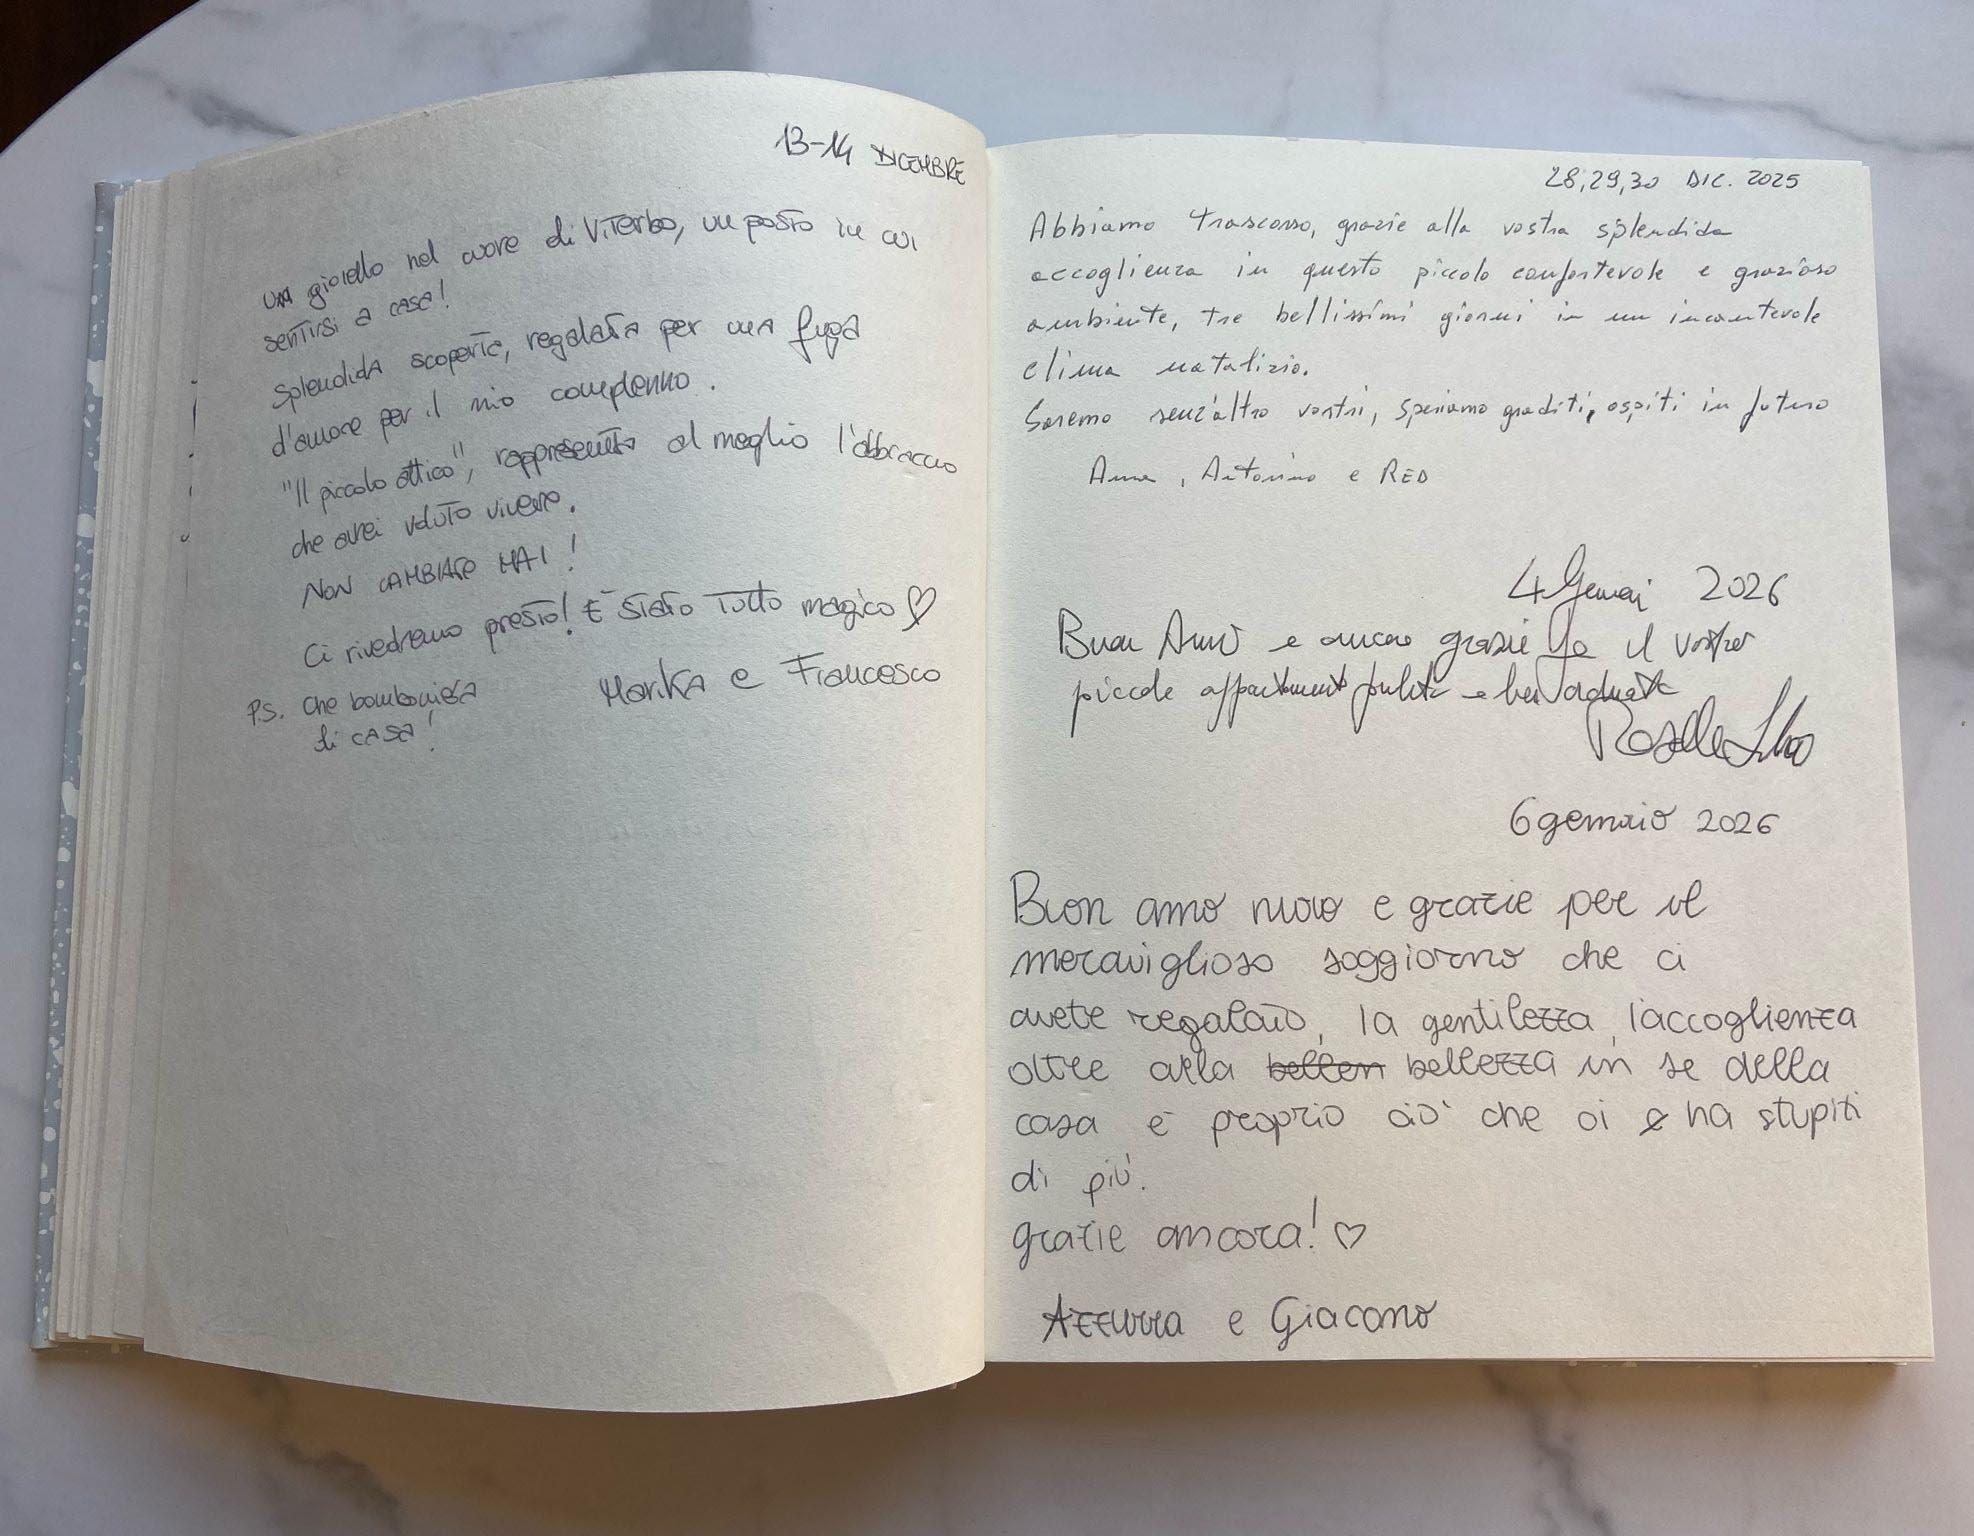 13-14 DICEMBRE
UN gioiello nel cuore di Viterbo, un posto in cui
sentirsi a casa!
Splendida scoperta, regalata per una fuga
d'amore per il mio compleanno.
"Il piccolo attico", rappresenta al meglio l'abbraccio
che avrei voluto vivere.
NON CAMBIATE MAI!
Ci rivedremo presto! È stato tutto magico ♡
Marika e Francesco
P.S. Che bomboniera
di casa!
28,29,30 DIC. 2025
Abbiamo trascorso, grazie alla vostra splendida
accoglienza in questo piccolo confortevole e grazioso
ambiente, tre bellissimi giorni in un incantevole
clima natalizio.
Saremo senz'altro vostri, speriamo graditi, ospiti in futuro
Anna, Antonino e RED
4 2026
Buon Anno e ancora grazie il vostro
piccolo appartamento pulito e ben
6 gennaio 2026
Buon anno nuovo e grazie per il
meraviglioso soggiorno che ci
avete regalato, la gentilezza, l'accoglienza
oltre alla bellen bellezza in se della
casa è proprio ciò che ci e ha stupiti
di più.
grazie ancora! ♡
Azzurra e Giacomo